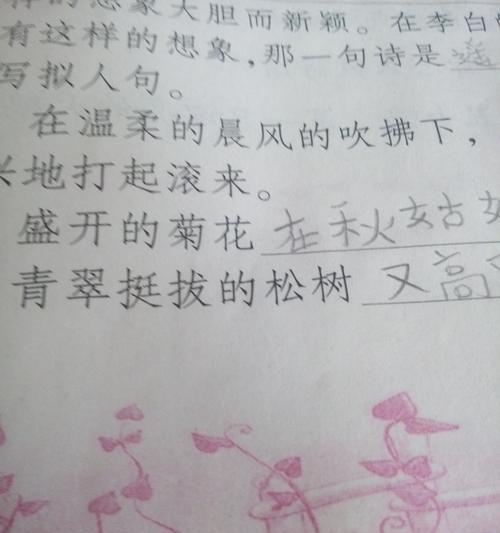 样的想象大胆而新颖。在李白
有这样的想象,那一句诗是
写拟人句。
在温柔的晨风的吹拂下,
兴地打起滚来。
盛开的菊花在秋姑
青翠挺拔的松树又高